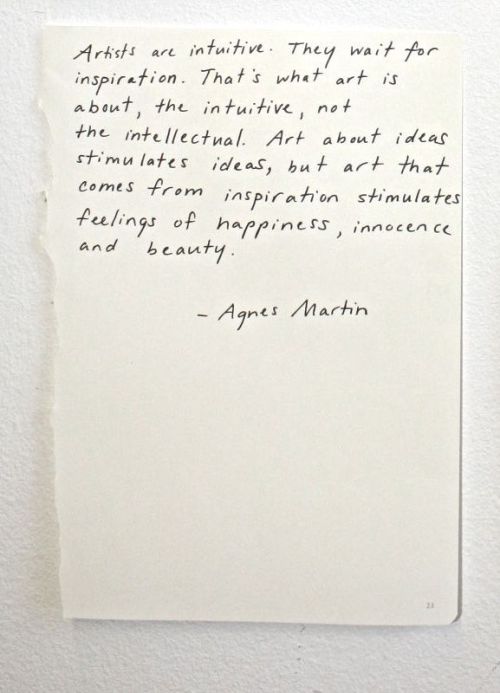 Artists are intuitive. They wait for
inspiration. That's what art is
about, the intuitive, not
the intellectual. Art about ideas
stimulates ideas, but art that
comes from inspiration stimulates
feelings of happiness, innocence
and beauty.
- Agnes Martin
23